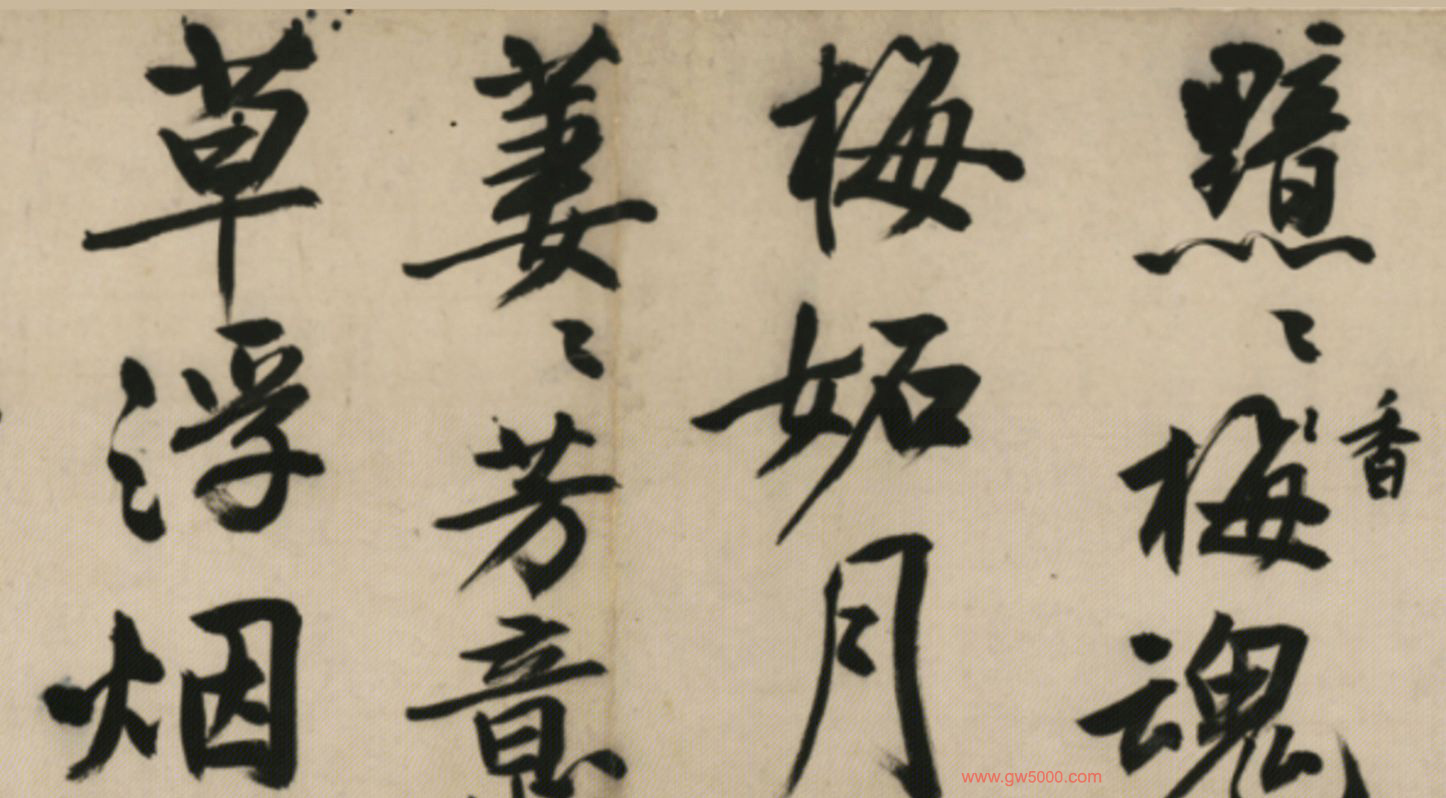 黯〻梅魂
香
梅妬月
萋〻芳意
草浮烟
www.gw5000.com